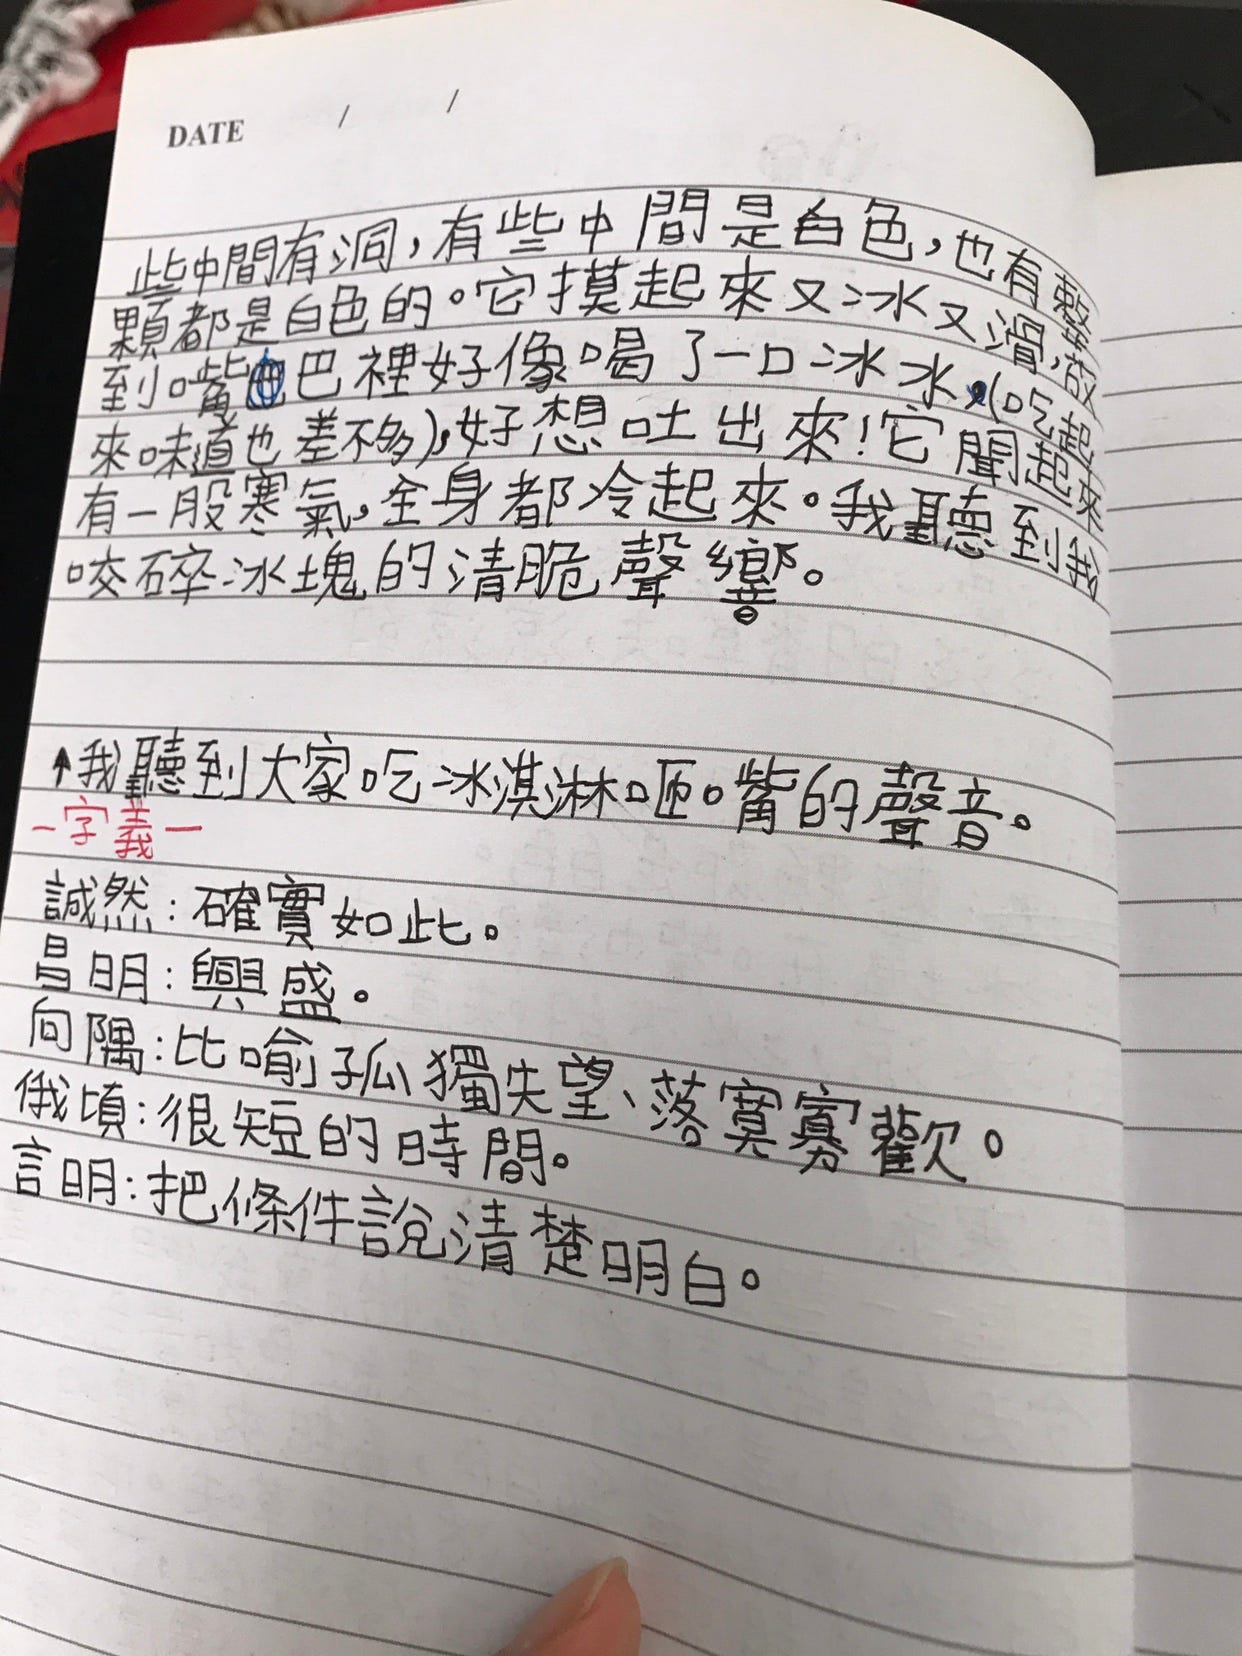 DATE / /
些中間有洞，有些中間是白色，也有整
顆都是白色的。它摸起來又冰又滑，放
到嘴巴裡好像喝了一口冰水，(吃起
來味道也差不多)，好想吐出來！它聞起來
有一股寒氣，全身都冷起來。我聽到我
咬碎冰塊的清脆聲響。
↑我聽到大家吃冰淇淋咂嘴的聲音。
－字義－
誠然：確實如此。
昌明：興盛。
向隅：比喻孤獨失望、落寞寡歡。
俄頃：很短的時間。
言明：把條件說清楚明白。